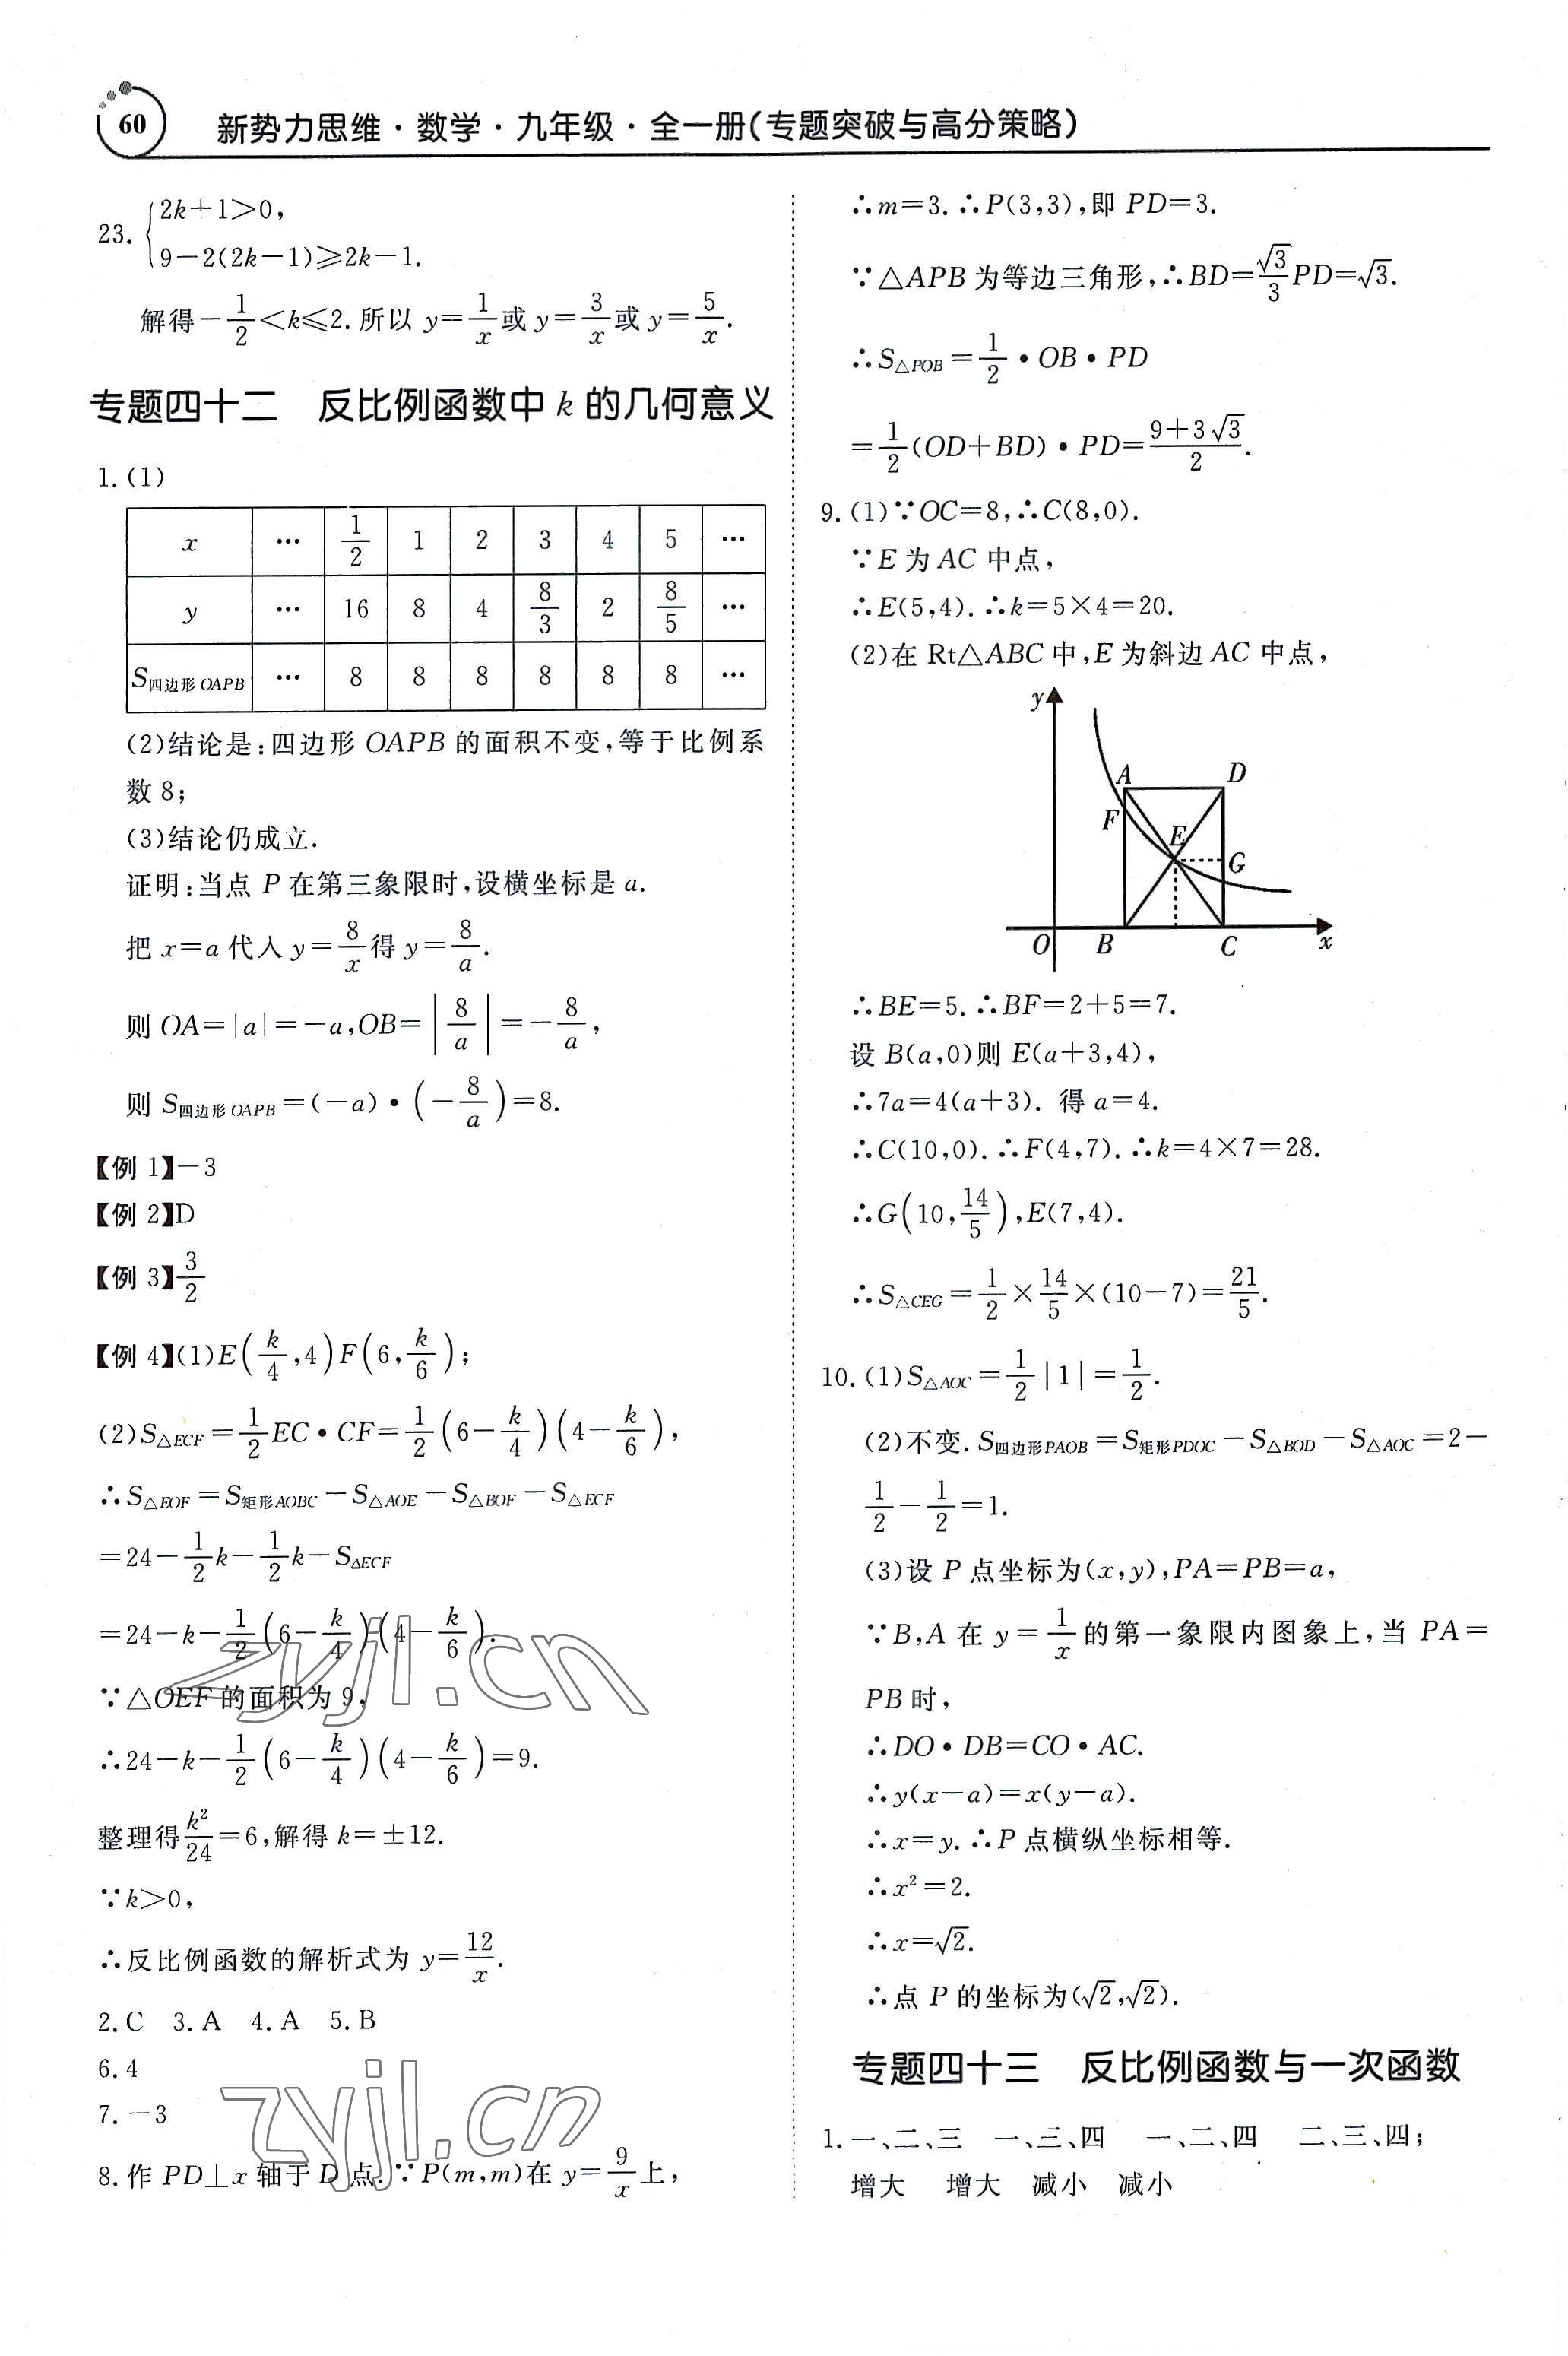 60
新势力思维·数学·九年级·全一册(专题突破与高分策略)
23. {2k+1>0,
9-2(2k-1)≥2k-1.
解得-1/2<k≤2.所以 y=1/x或 y=3/x或 y=5/x.
专题四十二 反比例函数中 k 的几何意义
1.(1)
x … 1/2 1 2 3 4 5 …
y … 16 8 4 8/3 2 8/5 …
S四边形OAPB … 8 8 8 8 8 8 …
(2)结论是:四边形 OAPB 的面积不变,等于比例系
数 8;
(3)结论仍成立.
证明:当点 P 在第三象限时,设横坐标是 a.
把 x=a 代入 y=8/x得 y=8/a.
则 OA=|a|=-a,OB=|8/a|=-8/a,
则 S四边形OAPB=(-a)·(-8/a)=8.
【例 1】-3
【例 2】D
【例 3】3/2
【例 4】(1)E(k/4,4)F(6,k/6);
(2)S△ECF=1/2EC·CF=1/2(6-k/4)(4-k/6),
∴S△EOF=S矩形AOBC-S△AOE-S△BOF-S△ECF
=24-1/2k-1/2k-S△ECF
=24-k-1/2(6-k/4)(4-k/6).
∵△OEF 的面积为 9,
∴24-k-1/2(6-k/4)(4-k/6)=9.
整理得k²/24=6,解得 k=±12.
∵k>0,
∴反比例函数的解析式为 y=12/x.
2.C 3.A 4.A 5.B
6.4
7.-3
8.作 PD⊥x 轴于 D 点.∵P(m,m)在 y=9/x上,
∴m=3.∴P(3,3),即 PD=3.
∵△APB 为等边三角形,∴BD=√3/3PD=√3.
∴S△POB=1/2·OB·PD
=1/2(OD+BD)·PD=(9+3√3)/2.
9.(1)∵OC=8,∴C(8,0).
∵E 为 AC 中点,
∴E(5,4).∴k=5×4=20.
(2)在 Rt△ABC 中,E 为斜边 AC 中点,
y
A D
F E
G
O B C x
∴BE=5.∴BF=2+5=7.
设 B(a,0)则 E(a+3,4),
∴7a=4(a+3). 得 a=4.
∴C(10,0).∴F(4,7).∴k=4×7=28.
∴G(10,14/5),E(7,4).
∴S△CEG=1/2×14/5×(10-7)=21/5.
10.(1)S△AOC=1/2|1|=1/2.
(2)不变.S四边形PAOB=S矩形PDOC-S△BOD-S△AOC=2-
1/2-1/2=1.
(3)设 P 点坐标为(x,y),PA=PB=a,
∵B,A 在 y=1/x的第一象限内图象上,当 PA=
PB 时,
∴DO·DB=CO·AC.
∴y(x-a)=x(y-a).
∴x=y.∴P 点横纵坐标相等.
∴x²=2.
∴x=√2.
∴点 P 的坐标为(√2,√2).
专题四十三 反比例函数与一次函数
1.一、二、三 一、三、四 一、二、四 二、三、四;
增大 增大 减小 减小
zyjl.cn
zyjl.cn